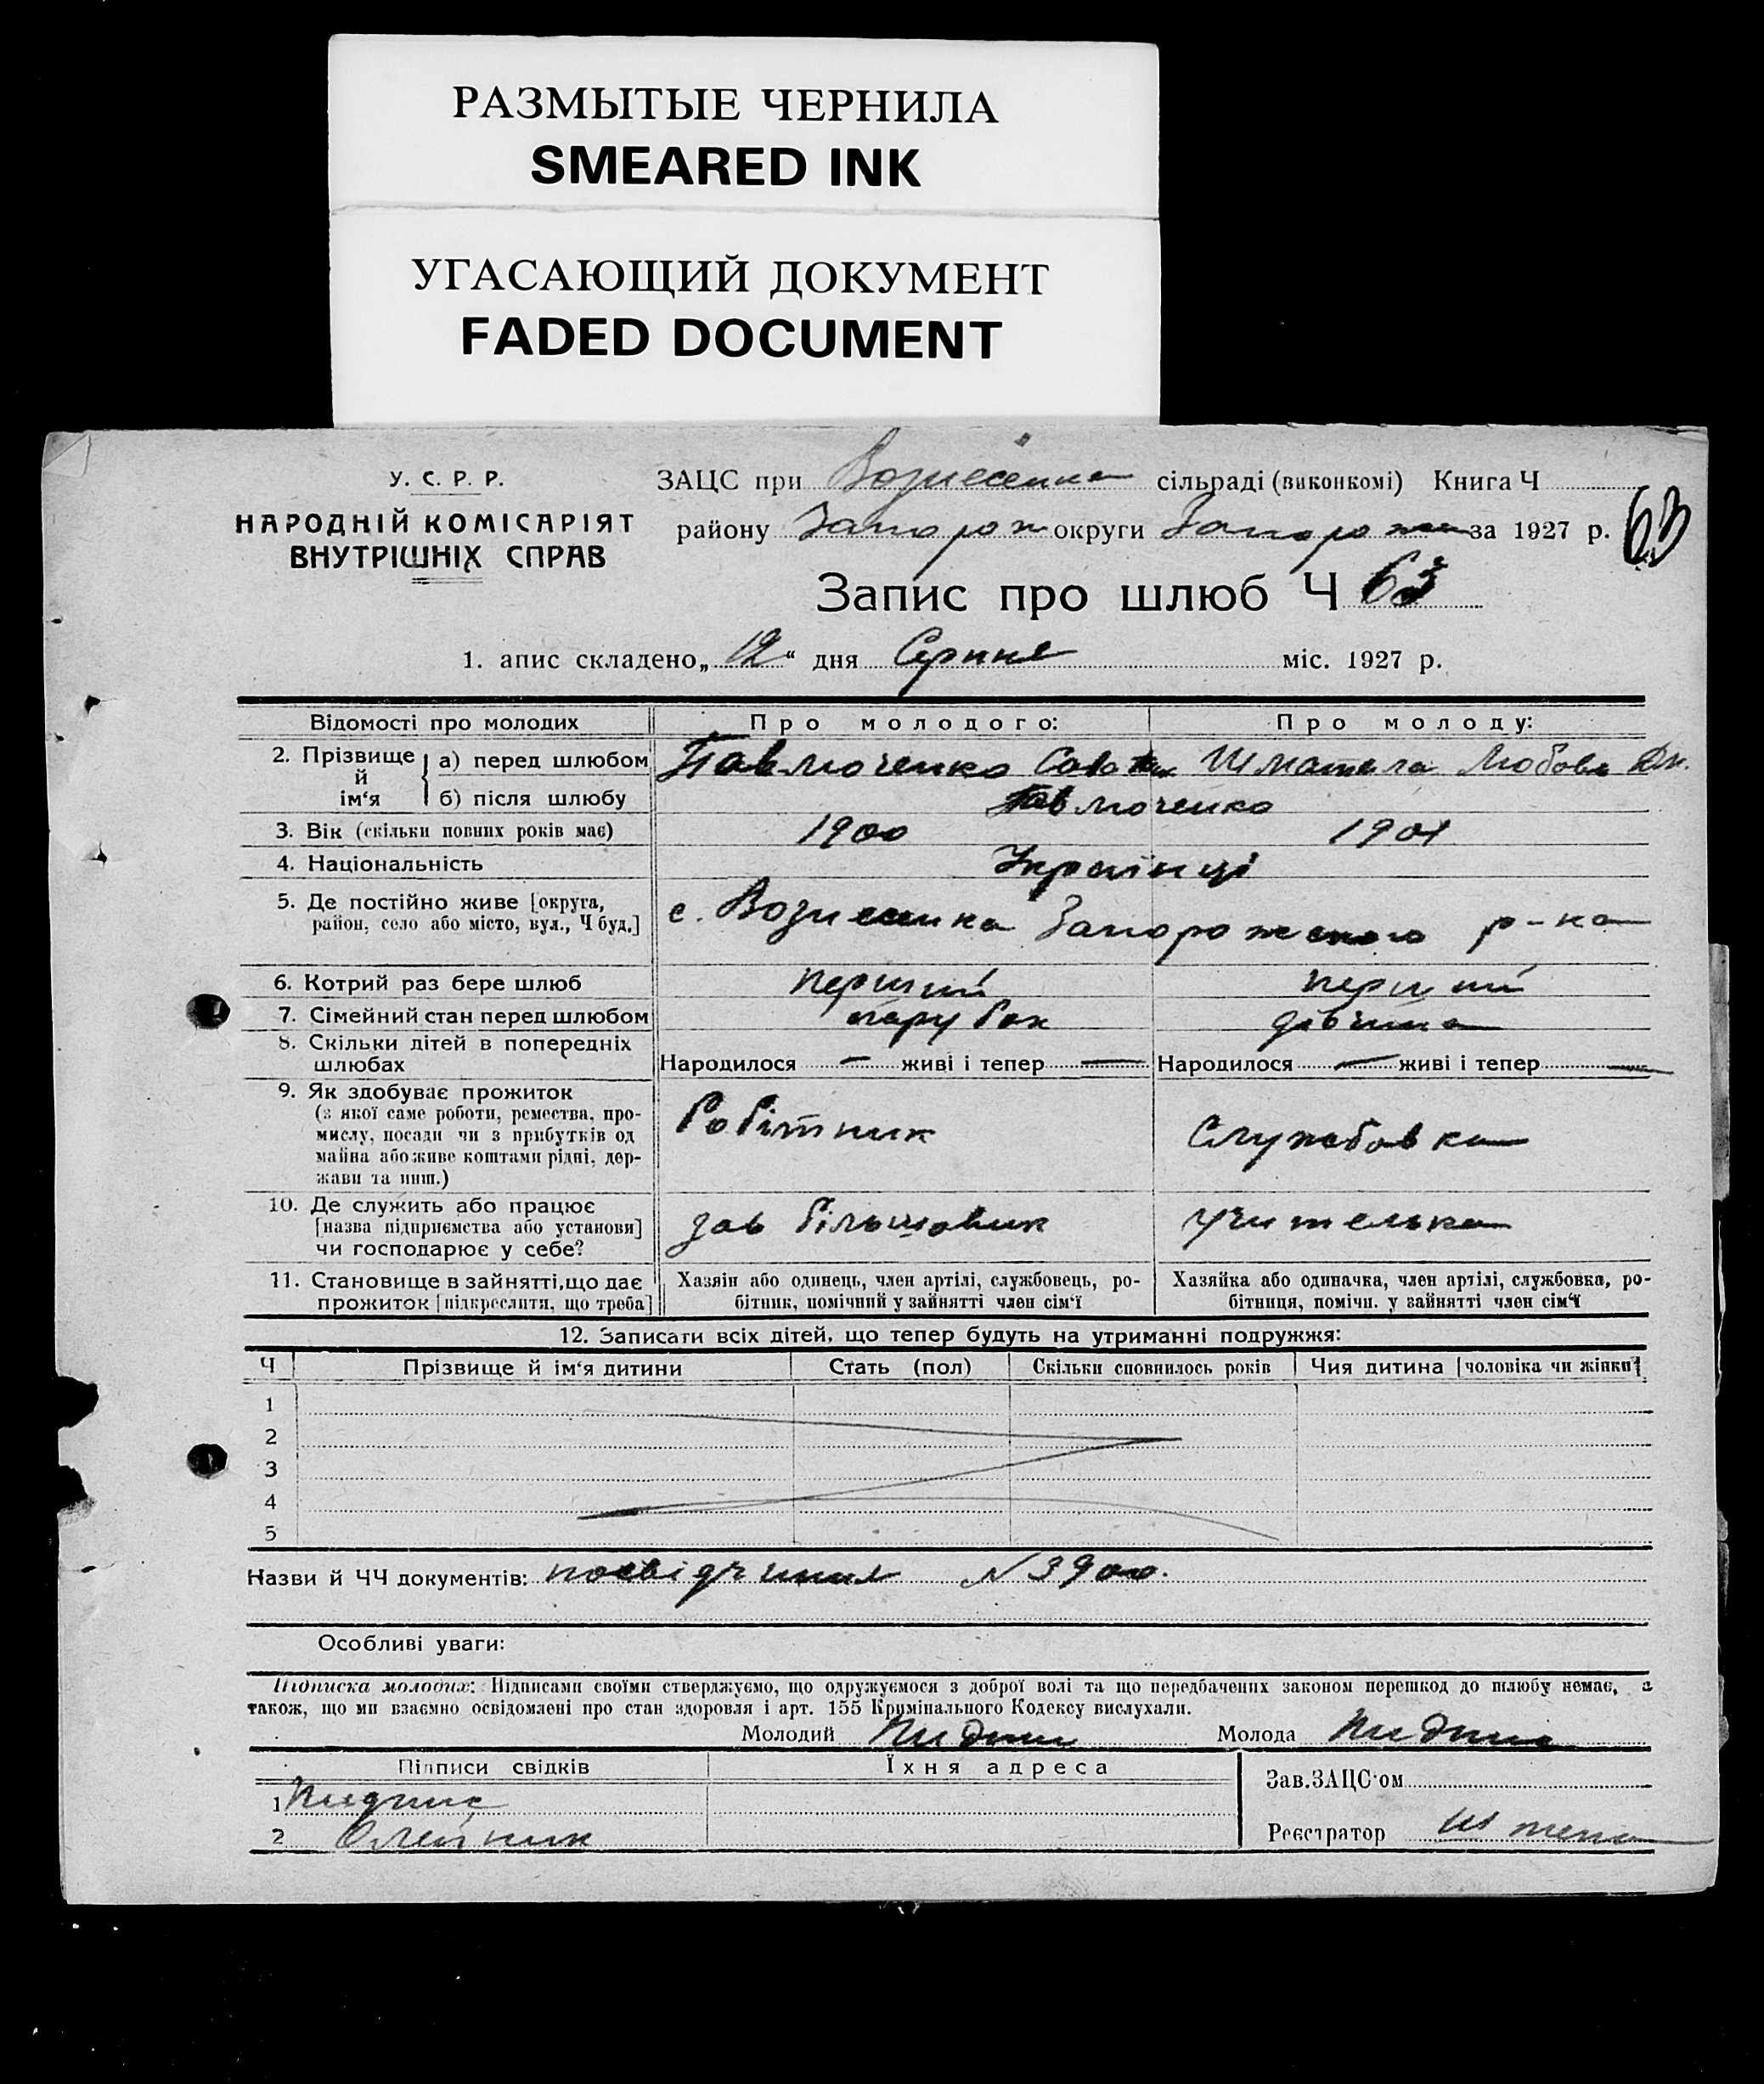 РАЗМЫТЫЕ ЧЕРНИЛА
SMEARED INK
УГАСАЮЩИЙ ДОКУМЕНТ
FADED DOCUMENT
У. С. Р. Р.
НАРОДНІЙ КОМІСАРІЯТ
ВНУТРІШНІХ СПРАВ
ЗАЦС при Вознесенка сільраді (виконкомі) Книга Ч
району Запорож округи Запорож за 1927 р. 63
Запис про шлюб Ч 63
1. апис складено „12“ дня Серпня міс. 1927 р.
Відомості про молодих Про молодого: Про молоду:
2. Прізвище й ім‘я а) перед шлюбом Павлюченко Шматела Любовь
б) після шлюбу Павлюченко
3. Вік (скільки повних років має) 1900 1901
4. Національність Українці
5. Де постійно живе [округа, район, село або місто, вул., Ч буд.] с. Вознесенка Запорожского р-ка
6. Котрий раз бере шлюб перший перший
7. Сімейний стан перед шлюбом парубок дівчина
8. Скільки дітей в попередніх шлюбах Народилося — живі і тепер — Народилося — живі і тепер —
9. Як здобуває прожиток Робітник Службовка
(з якої саме роботи, ремества, про-
мислу, посади чи з прибутків од
майна або живе коштами рідні, дер-
жави та инш.)
10. Де служить або працює зав більшовик учителька
[назва підприємства або установи]
чи господарює у себе?
11. Становище в зайнятті, що дає Хазяїн або одинець, член артілі, службовець, ро- Хазяйка або одиначка, член артілі, службовка, ро-
прожиток [підкреслити, що треба] бітник, помічний у зайнятті член сім‘ї бітниця, помічн. у зайнятті член сім‘ї
12. Записати всіх дітей, що тепер будуть на утриманні подружжя:
Ч Прізвище й ім‘я дитини Стать (пол) Скільки сповнилось років Чия дитина [чоловіка чи жінки]
1
2
3
4
5
Назви й ЧЧ документів: посвідчиння N 3900.
Особливі уваги:
Підписка молодих: Підписами своїми стверджуємо, що одружуємося з доброї волі та що передбачених законом перешкод до шлюбу немає, а
також, що ми взаємно освідомлені про стан здоровля і арт. 155 Кримінального Кодексу вислухали.
Молодий Молода
Підписи свідків Їхня адреса Зав.ЗАЦС‘ом
1 Пидпис
2 Олейник Реєстратор